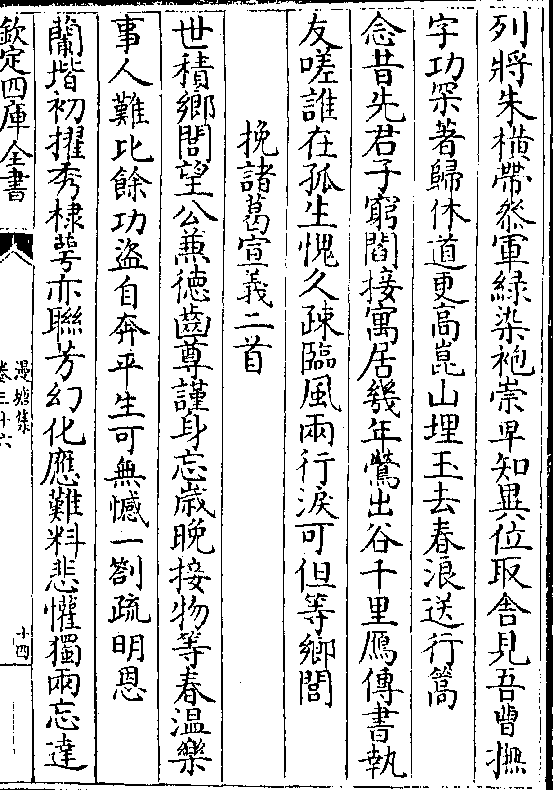 列將朱橫帶參軍緑染袍崇卑知異位取舍見吾曹撫
字功深著歸休道更高崑山埋玉去春浪送行篙
念昔先君子窮閻接寓居幾年鶯出谷千里鴈傳書執
友嗟誰在孤生愧久疎臨風兩行淚可但等鄉閭
挽諸葛宣義二首
世積鄉閭望公兼德齒尊謹身忘歳晚接物等春温樂
事人難比餘功盜自奔平生可無憾一劄疏明恩
蘭堦初擢秀棣萼亦聯芳幻化應難料悲懽獨兩忘達
欽定四庫全書
漫塘集
卷三十六
十四